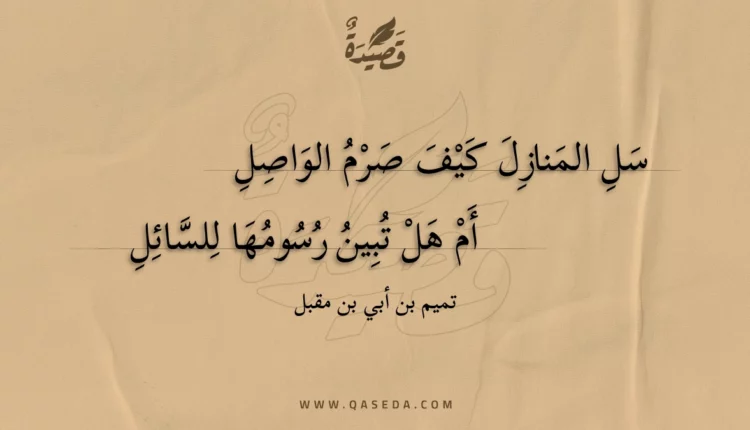 قَصِيدَةٌ
سَلِ المَنازِلَ كَيْفَ صَرْمُ الوَاصِلِ
أَمْ هَلْ تُبِينُ رُسُومُهَا لِلسَّائِلِ
تميم بن أبي بن مقبل
WWW.QASEDA.COM